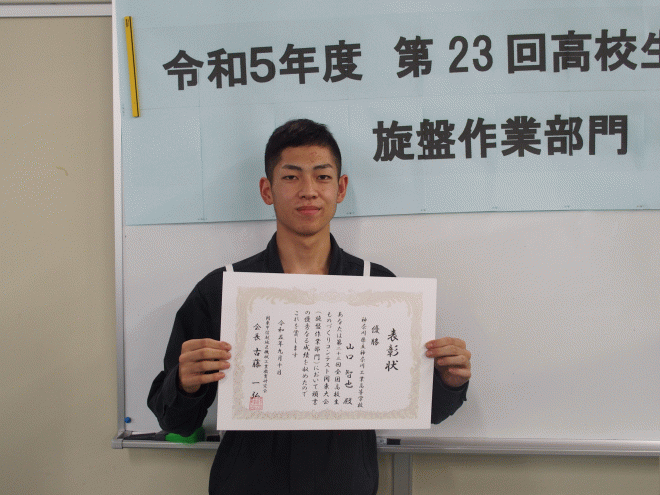 令和5年度 第23回高校生
旋盤作業部門
表彰状
優勝
神奈川県立神奈川工業高等学校
山口 智也 殿
あなたは第二十三回全国高校生
ものづくりコンテスト関東大会
(旋盤作業部門)において頭書
の優秀なる成績を収めたので
これを賞します
令和五年九月十日
会長 古藤 一弘